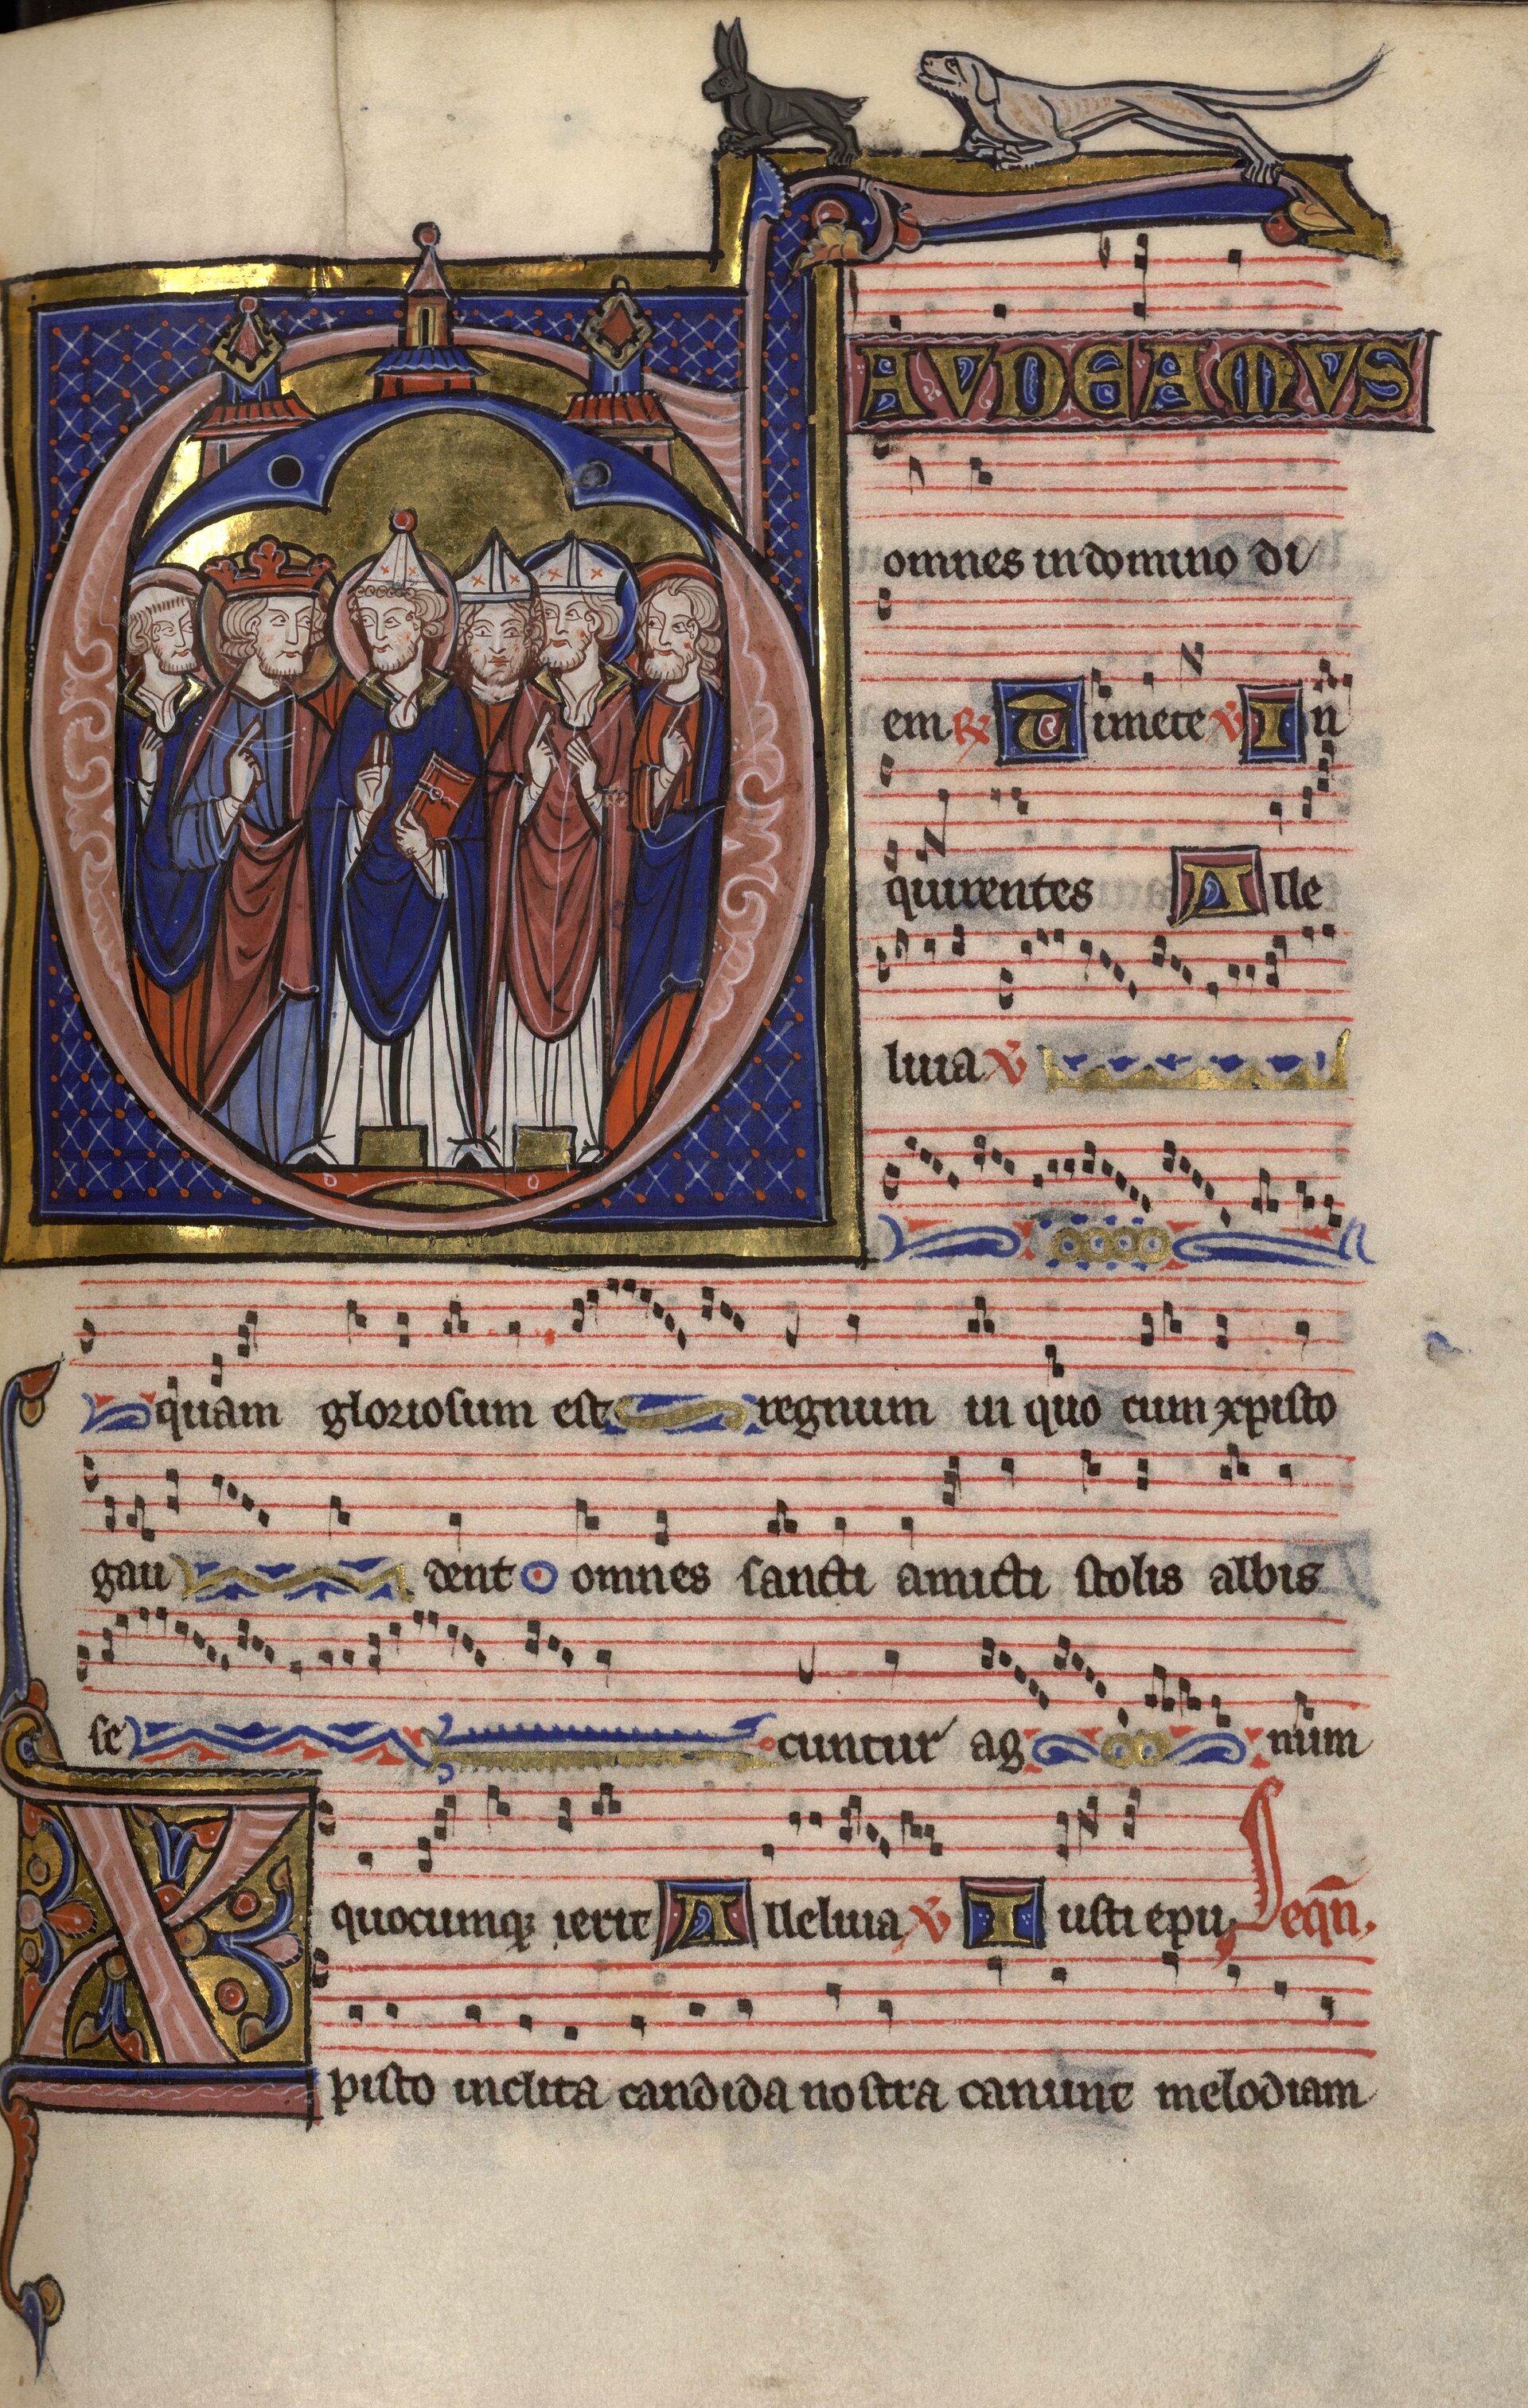 GAUDEAMUS
omnes in domino di
em ℟ Timete ℣ In
quirentes Alle
luia ℣
O
quam gloriosum est regnum in quo cum xpisto
gau dent omnes sancti amicti stolis albis
se cuntur ag num
quocumq; ierit Alleluia ℣ Iusti epu Sequ̅.
Xpisto inclita candida nostra canunt melodiam